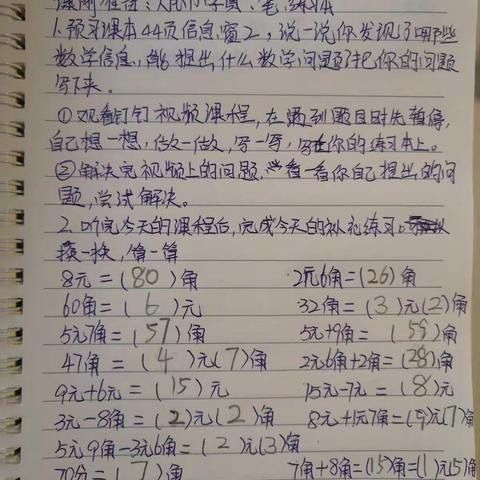 课前准备：人民币学具、笔、练习本
1.预习课本44页信息窗2，说一说你发现了哪些
数学信息，能提出什么数学问题？把你的问题
写下来。
①观看钉钉视频课程，在遇到题目时先暂停，
自己想一想，做一做，写一写，写在你的练习本上。
②解决完视频上的问题，看一看你自己提出的问
题，尝试解决。
2.听完今天的课程后，完成今天的补充练习。
换一换，算一算
8元=(80)角 2元6角=(26)角
60角=(6)元 32角=(3)元(2)角
5元7角=(57)角 5元+9角=(59)角
47角=(4)元(7)角 2元6角+2角=(28)角
9元+6元=(15)元 15元-7元=(8)元
3元-8角=(2)元(2)角 8元+1元7角=(9)元(7)角
5元9角-3元6角=(2)元(3)角
70分=(7)角 7角+8角=(15)角=(1)元(5)角